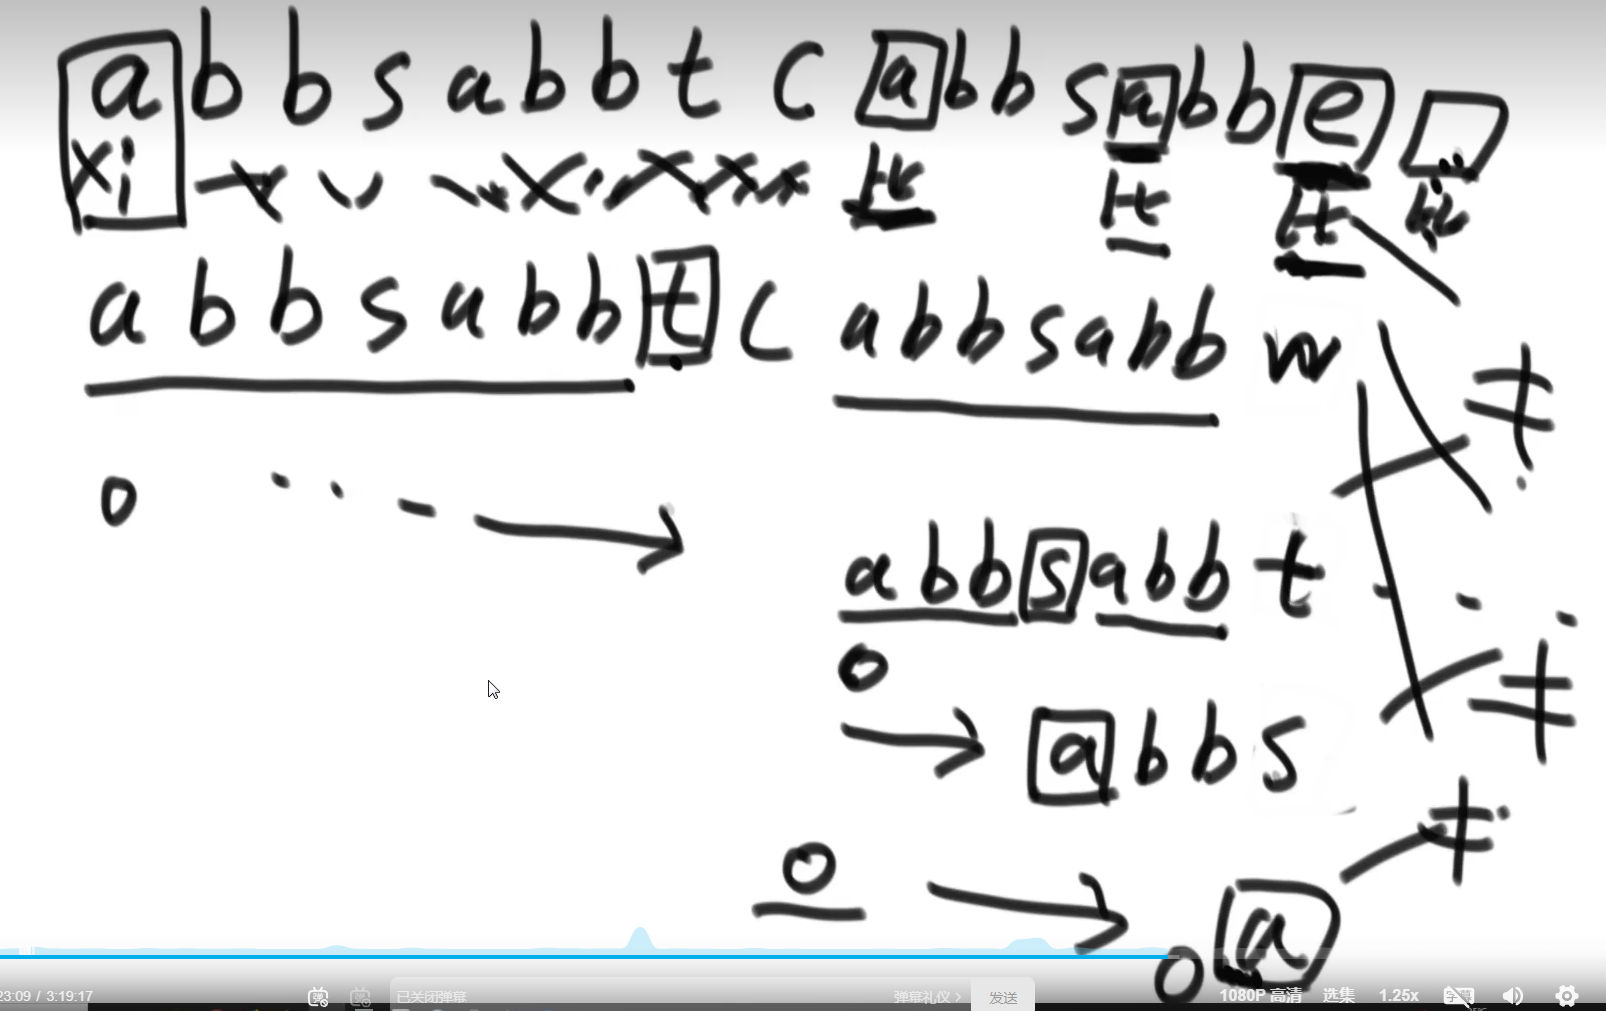 a b b s a b b t c a b b s a b b e
a b b s a b b t c a b b s a b b w
≠
0
a b b s a b b t
0
≠
a b b s
≠
0
0 a
23:09 / 3:19:17
弹
已关闭弹幕
弹幕礼仪 >
发送
1080P 高清
选集
1.25x
字幕